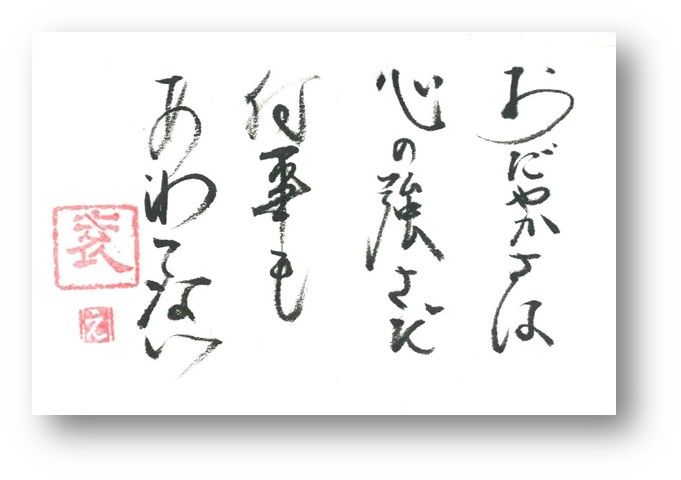 おだやかさは
心の強さだ
何事も
あわてない
え